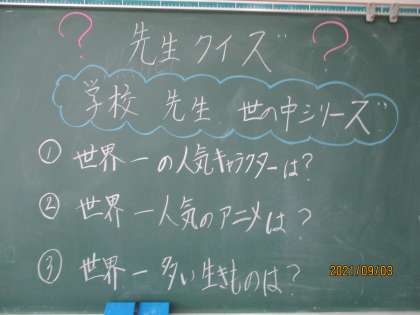 ? 先生クイズ ?
学校 先生 世の中シリーズ
① 世界一の人気キャラクターは?
② 世界一人気のアニメは?
③ 世界一多い生きものは?
2021/09/03